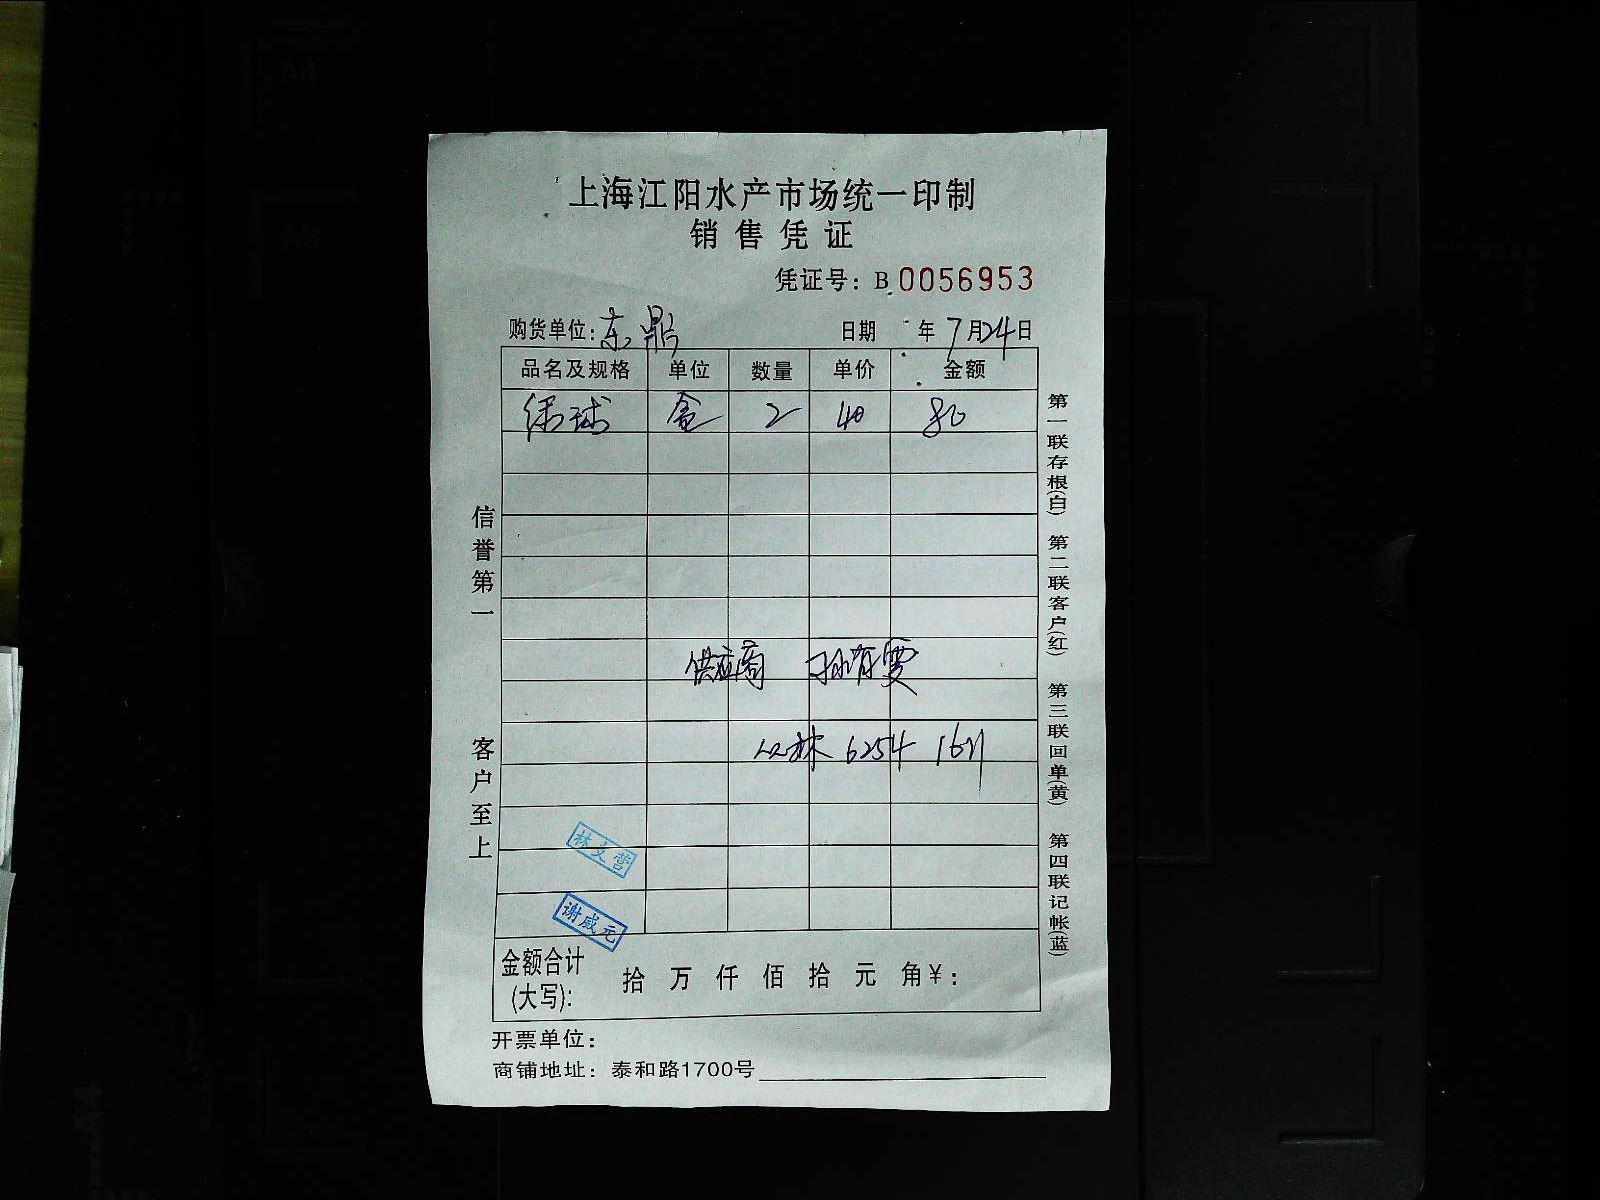 上海江阳水产市场统一印制
销售凭证
凭证号：B 0056953
购货单位：东鼎 日期 年7月24日
品名及规格 单位 数量 单价 金额
绿球 盒 2 40 80
供应商
6254 1611
林文营
谢咸元
金额合计(大写)： 拾 万 仟 佰 拾 元 角 ¥：
开票单位：
商铺地址：泰和路1700号
信誉第一 客户至上
第一联存根(白) 第二联客户(红) 第三联回单(黄) 第四联记帐(蓝)